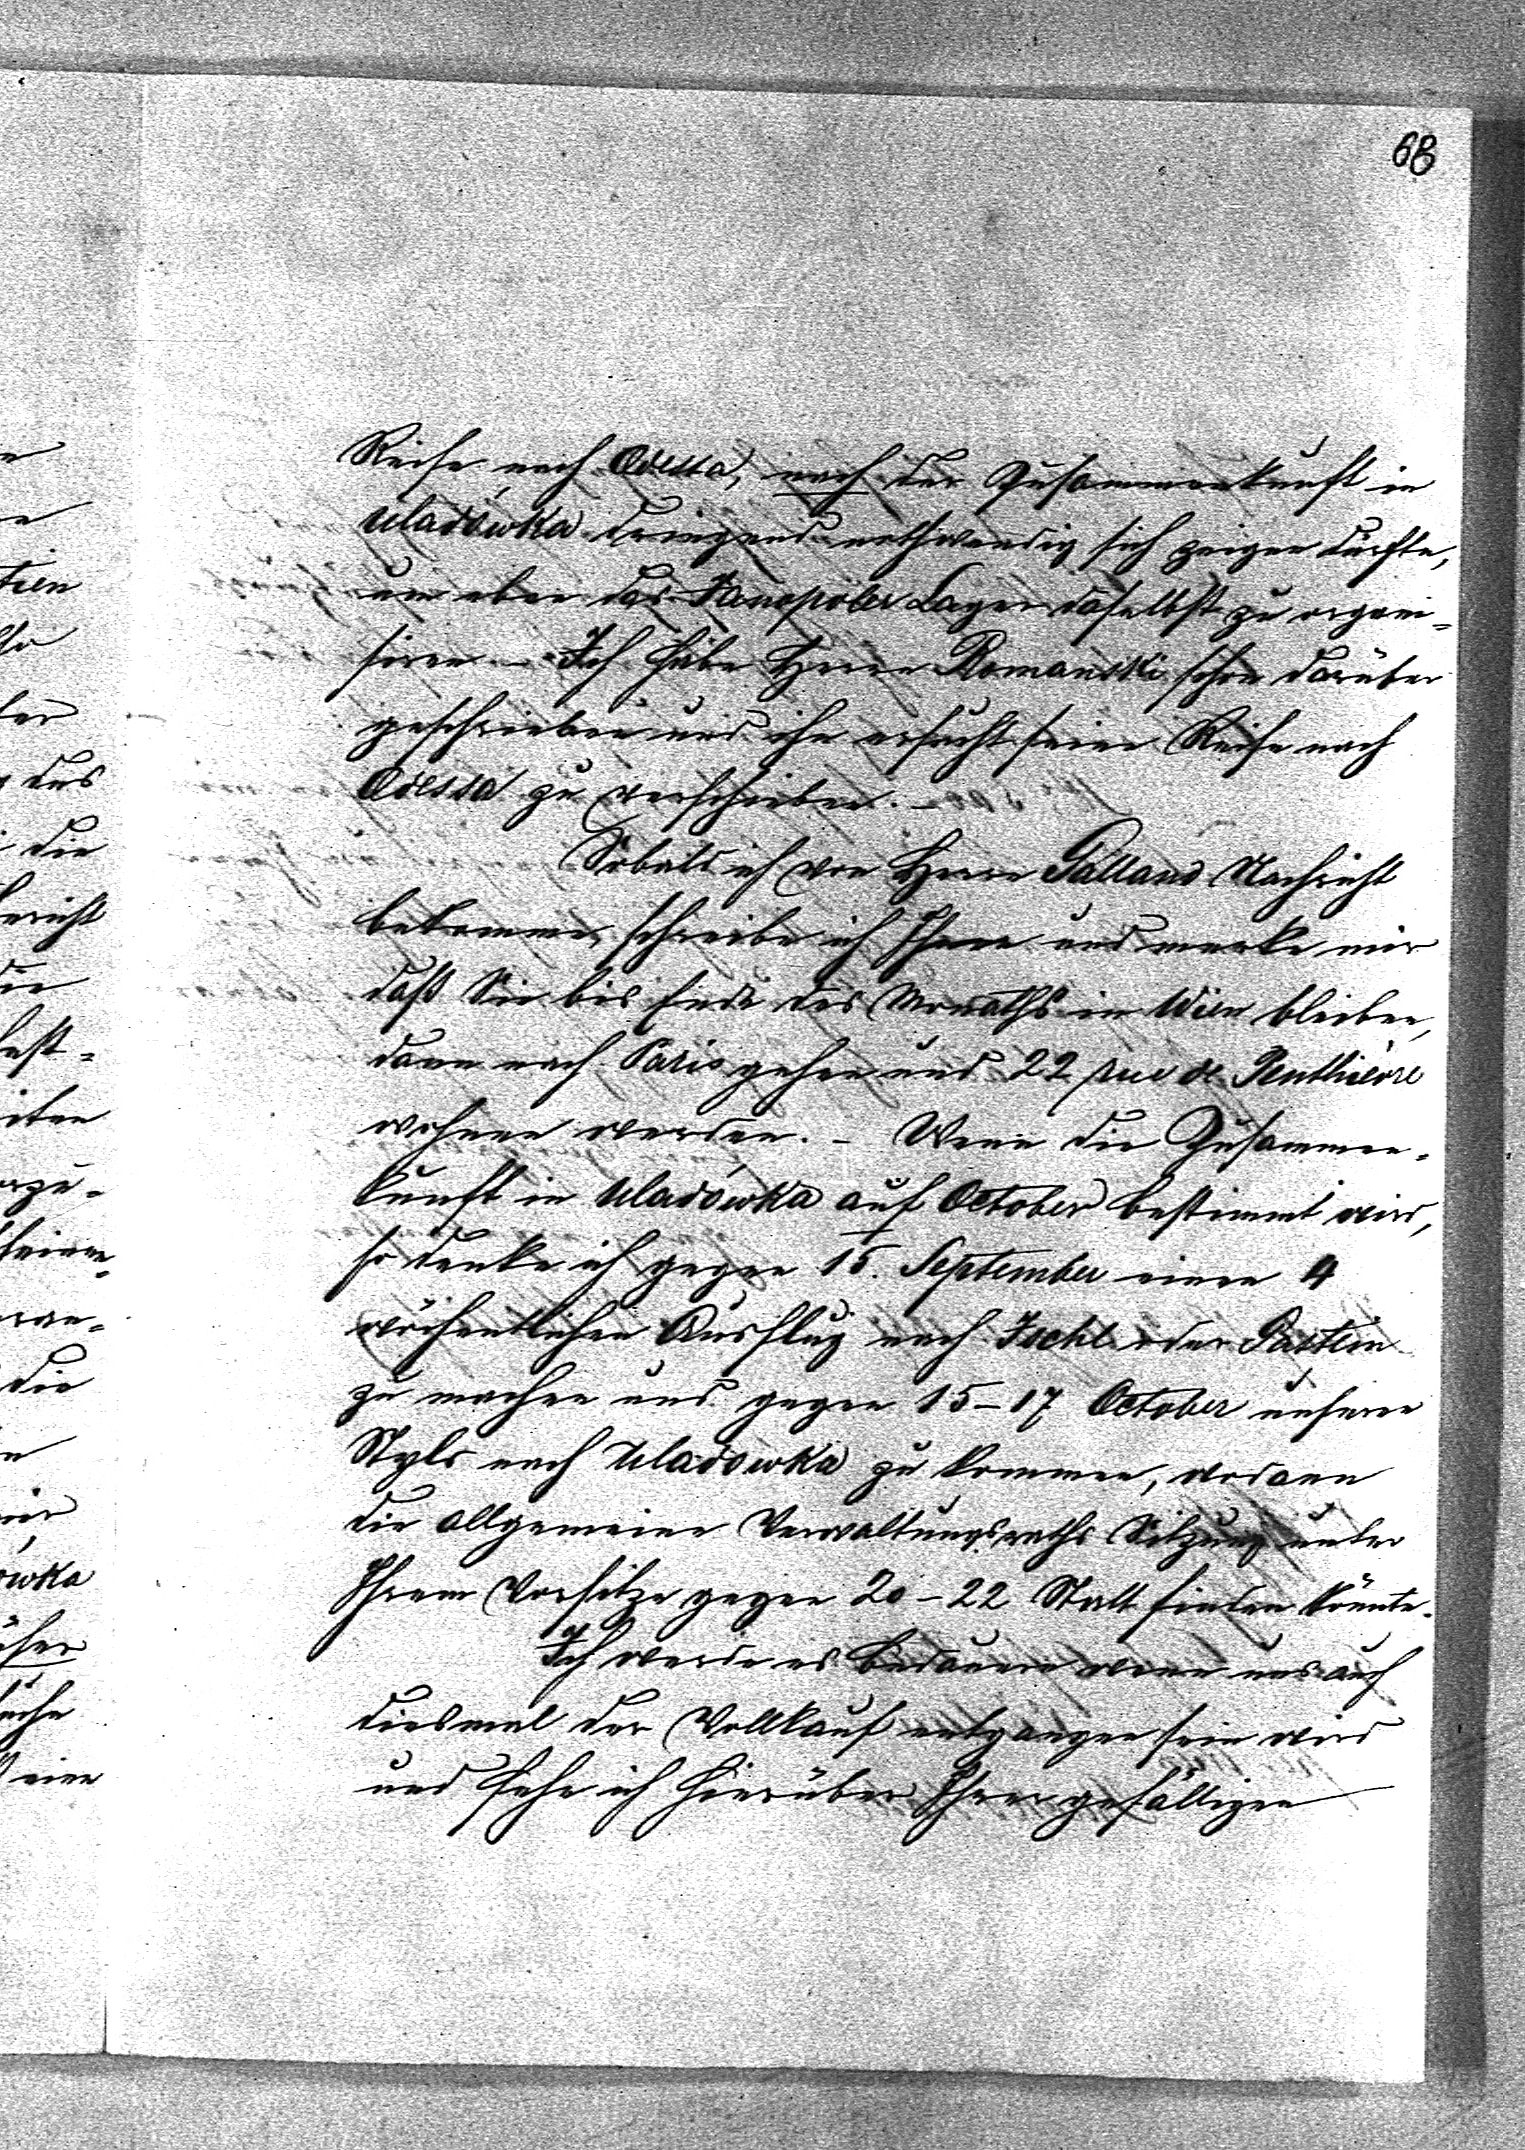 68
Reise nach Odessa, nach der Zusammenkunft in
Uladówka dringend nothwendig sich zeigen dürfte,
um eben das Janopoler Lager daselbst zu organi-
siren. – Ich habe Herrn Romanski schon darüber
geschrieben und ihn ersucht seine Reise nach
Odessa zu verschieben. –
Sobald ich von Herrn Galland Nachricht
bekomme, schreibe ich Ihnen und merke mir
daß Sie bis Ende des Monaths in Wien bleiben,
dann nach Paris gehen und 22 rue de Penthièvre
wohnen werden. – Wenn die Zusammen-
kunft in Uladówka auf October bestimmt wird,
so denke ich gegen 15. September einen 4
wöchentlichen Ausflug nach Ischl oder Gastein
zu machen und gegen 15–17 October unseren
Styls nach Uladówka zu kommen, wodann
die allgemeine Verwaltungsraths Sitzung unter
Ihrem Vorsitze gegen 20–22 Statt finden könnte.
Ich werde es bedauern wenn uns auch
diesmal der Vollkauf entgangen sein wird
und sehe ich hierüber Ihren gefälligen